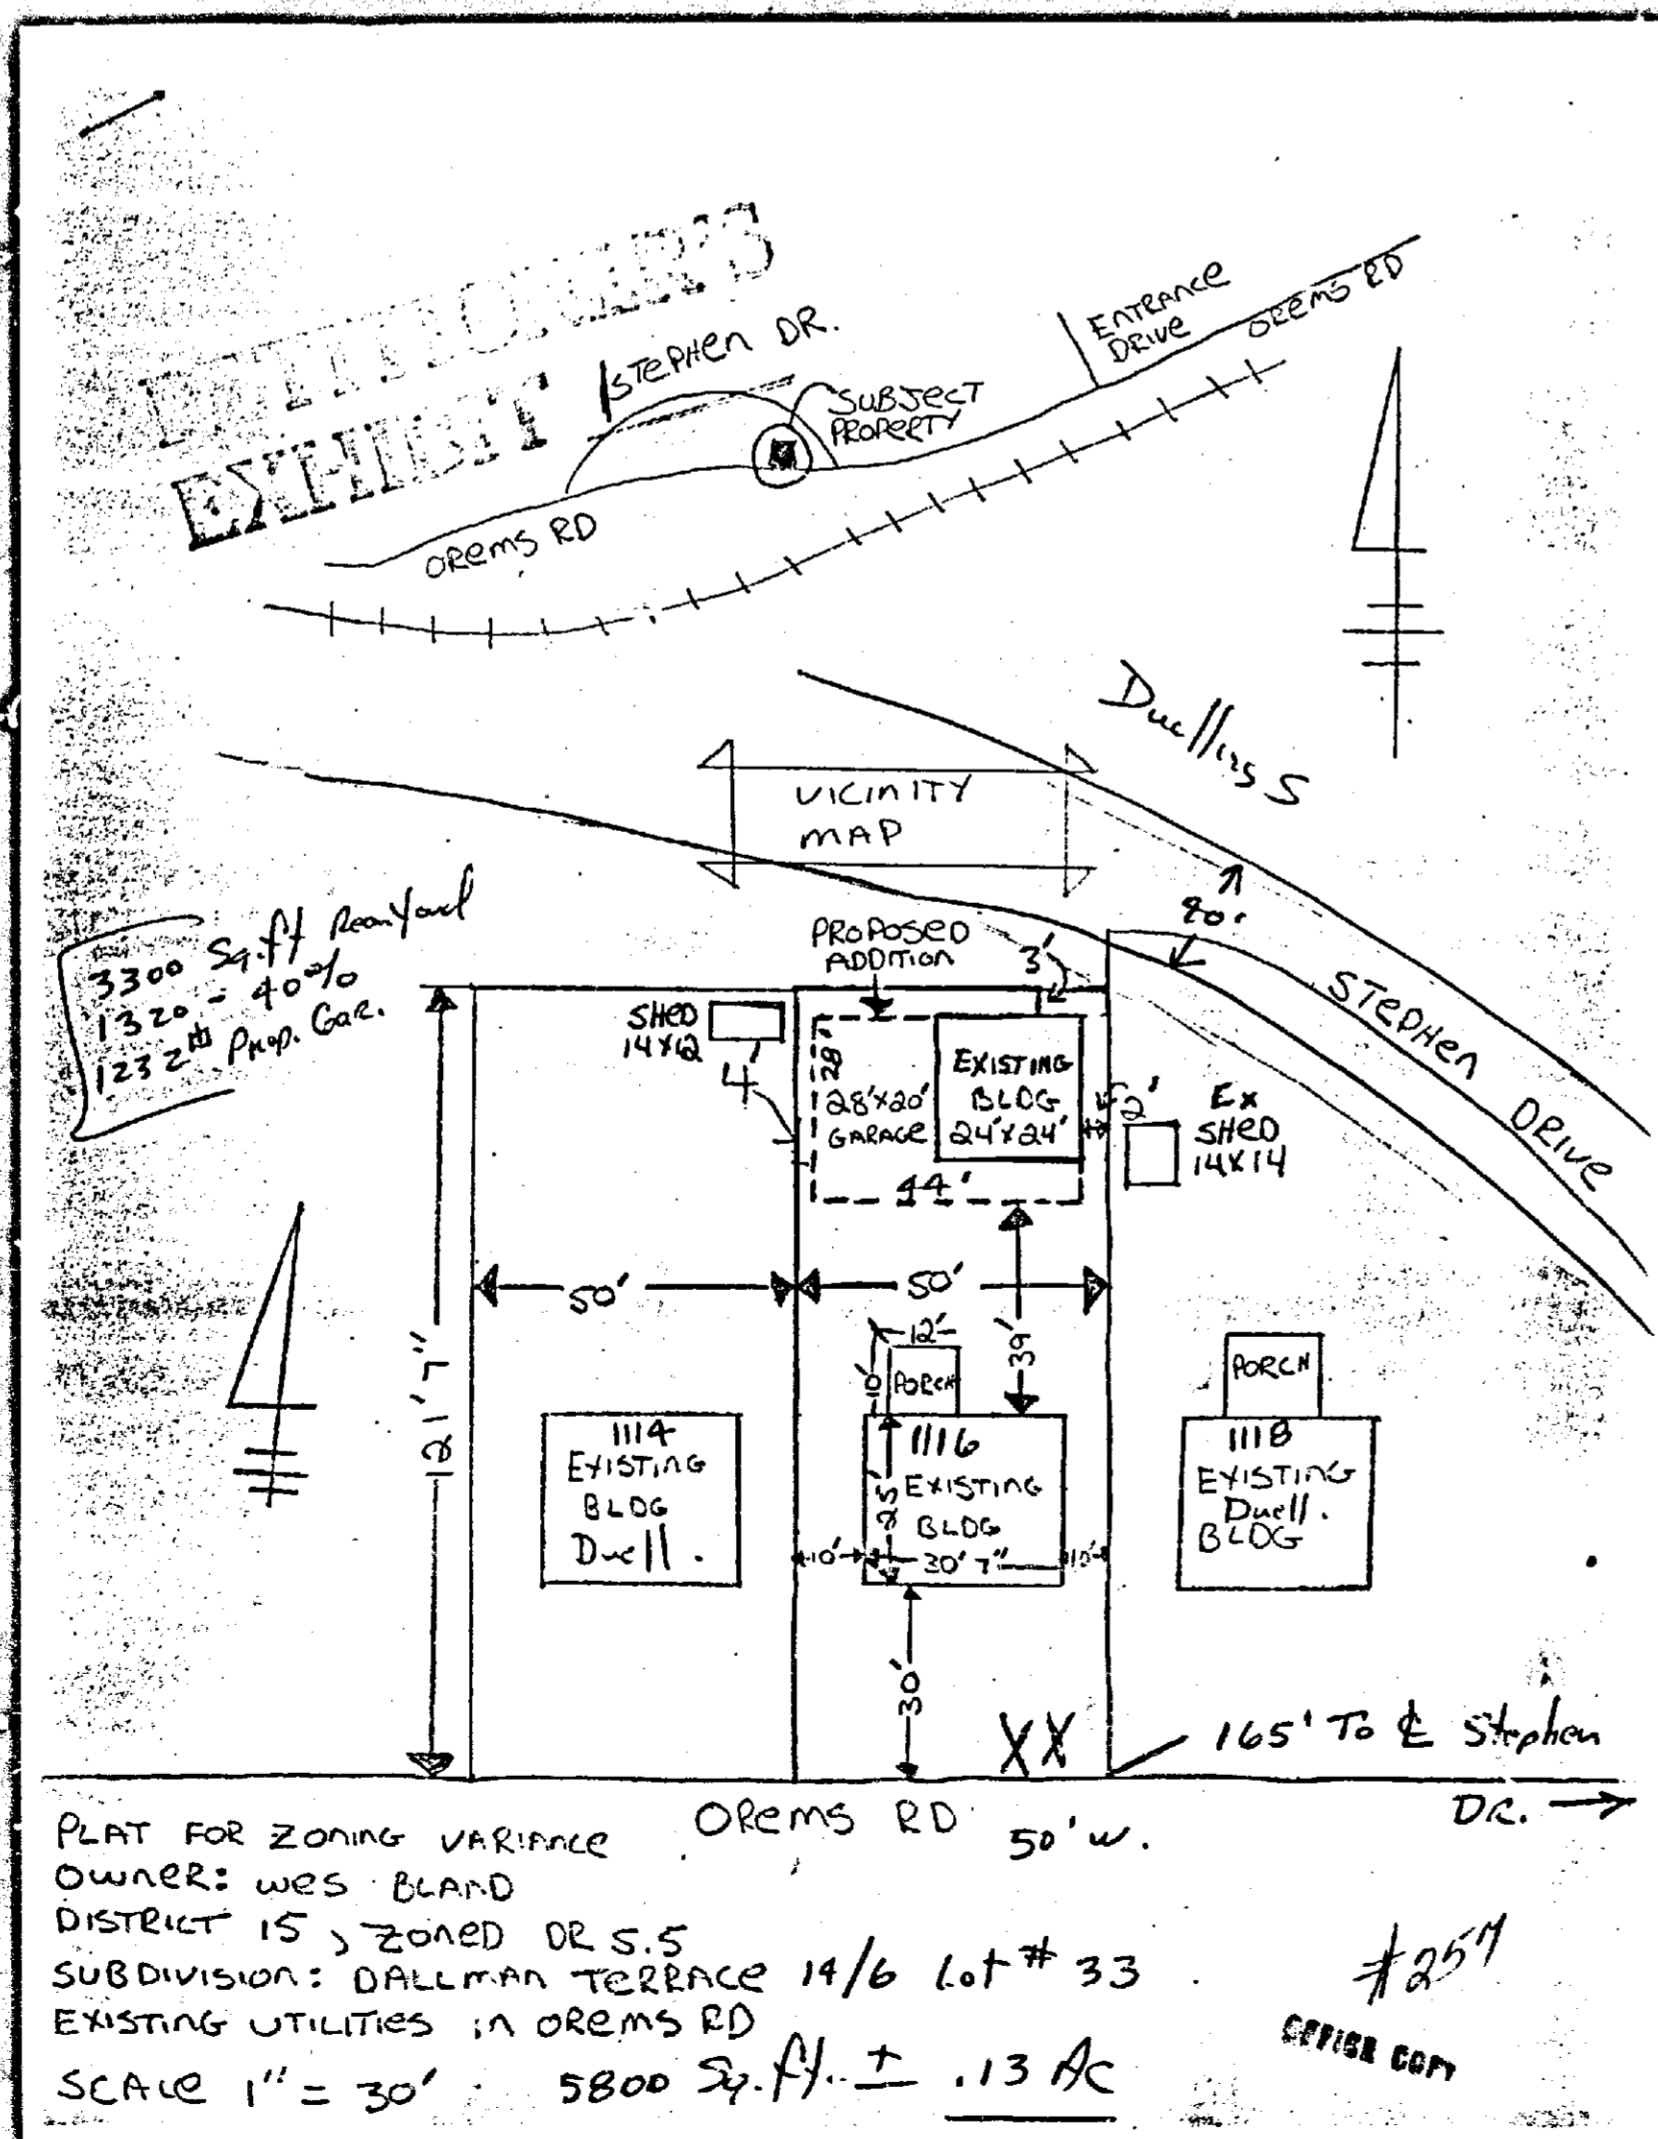 PETITIONER'S
EXHIBIT
STEPHEN DR.
SUBJECT
PROPERTY
ENTRANCE
DRIVE
OREMS RD
OREMS RD
Dwellings
VICINITY
MAP
80'
STEPHEN DRIVE
3300 Sq.ft Rear Yard
1320 = 40%
1232 Prop. Gar.
PROPOSED
ADDITION
3'
SHED
14X12
4
28'
28'X20'
GARAGE
EXISTING
BLDG
24'X24'
2'
EX
SHED
14X14
44'
50'
50'
39'
121' 7"
12'
10'
PORCH
PORCH
1114
EXISTING
BLDG
Dwell.
1116
EXISTING
BLDG
25'
10'
30' 7"
10'
1118
EXISTING
Dwell.
BLDG
30'
XX
165' To ℄ Stephen
DR.
OREMS RD 50' W.
PLAT FOR ZONING VARIANCE
OWNER: WES BLAND
DISTRICT 15, ZONED DR 5.5
SUBDIVISION: DALLMAN TERRACE 14/6 Lot # 33
EXISTING UTILITIES IN OREMS RD
SCALE 1" = 30' 5800 Sq.ft. ± .13 AC
#257
OFFICE COPY